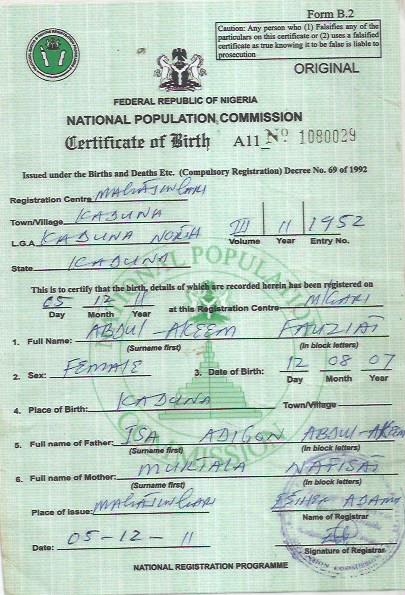 Form B.2
Caution: Any person who (1) Falsifies any of the
particulars on this certificate or (2) uses a falsified
certificate as true knowing it to be false is liable to
prosecution
ORIGINAL
FEDERAL REPUBLIC OF NIGERIA
NATIONAL POPULATION COMMISSION
Certificate of Birth A11 Nº 1080029
Issued under the Births and Deaths Etc. (Compulsory Registration) Decree No. 69 of 1992
Registration Centre
Town/Village KADUNA
III 11 1952
L.G.A KADUNA NORTH Volume Year Entry No.
State KADUNA
This is to certify that the birth, details of which are recorded herein has been registered on
05 12 11 at this Registration Centre
Day Month Year
1. Full Name: ABDUL-AKEEM FAUZIAT
(Surname first) (In block letters)
2. Sex: FEMALE 3. Date of Birth: 12 08 07
Day Month Year
4. Place of Birth: KADUNA Town/Village
5. Full name of Father: ISA ADIGUN ABDUL-AKEEM
(Surname first) (In block letters)
6. Full name of Mother: MUKTALA NAFISAT
(Surname first) (In block letters)
Place of issue: ESTHER ADAMU
Name of Registrar
Date: 05-12-11
Signature of Registrar
NATIONAL REGISTRATION PROGRAMME
NATIONAL POPULATION COMMISSION